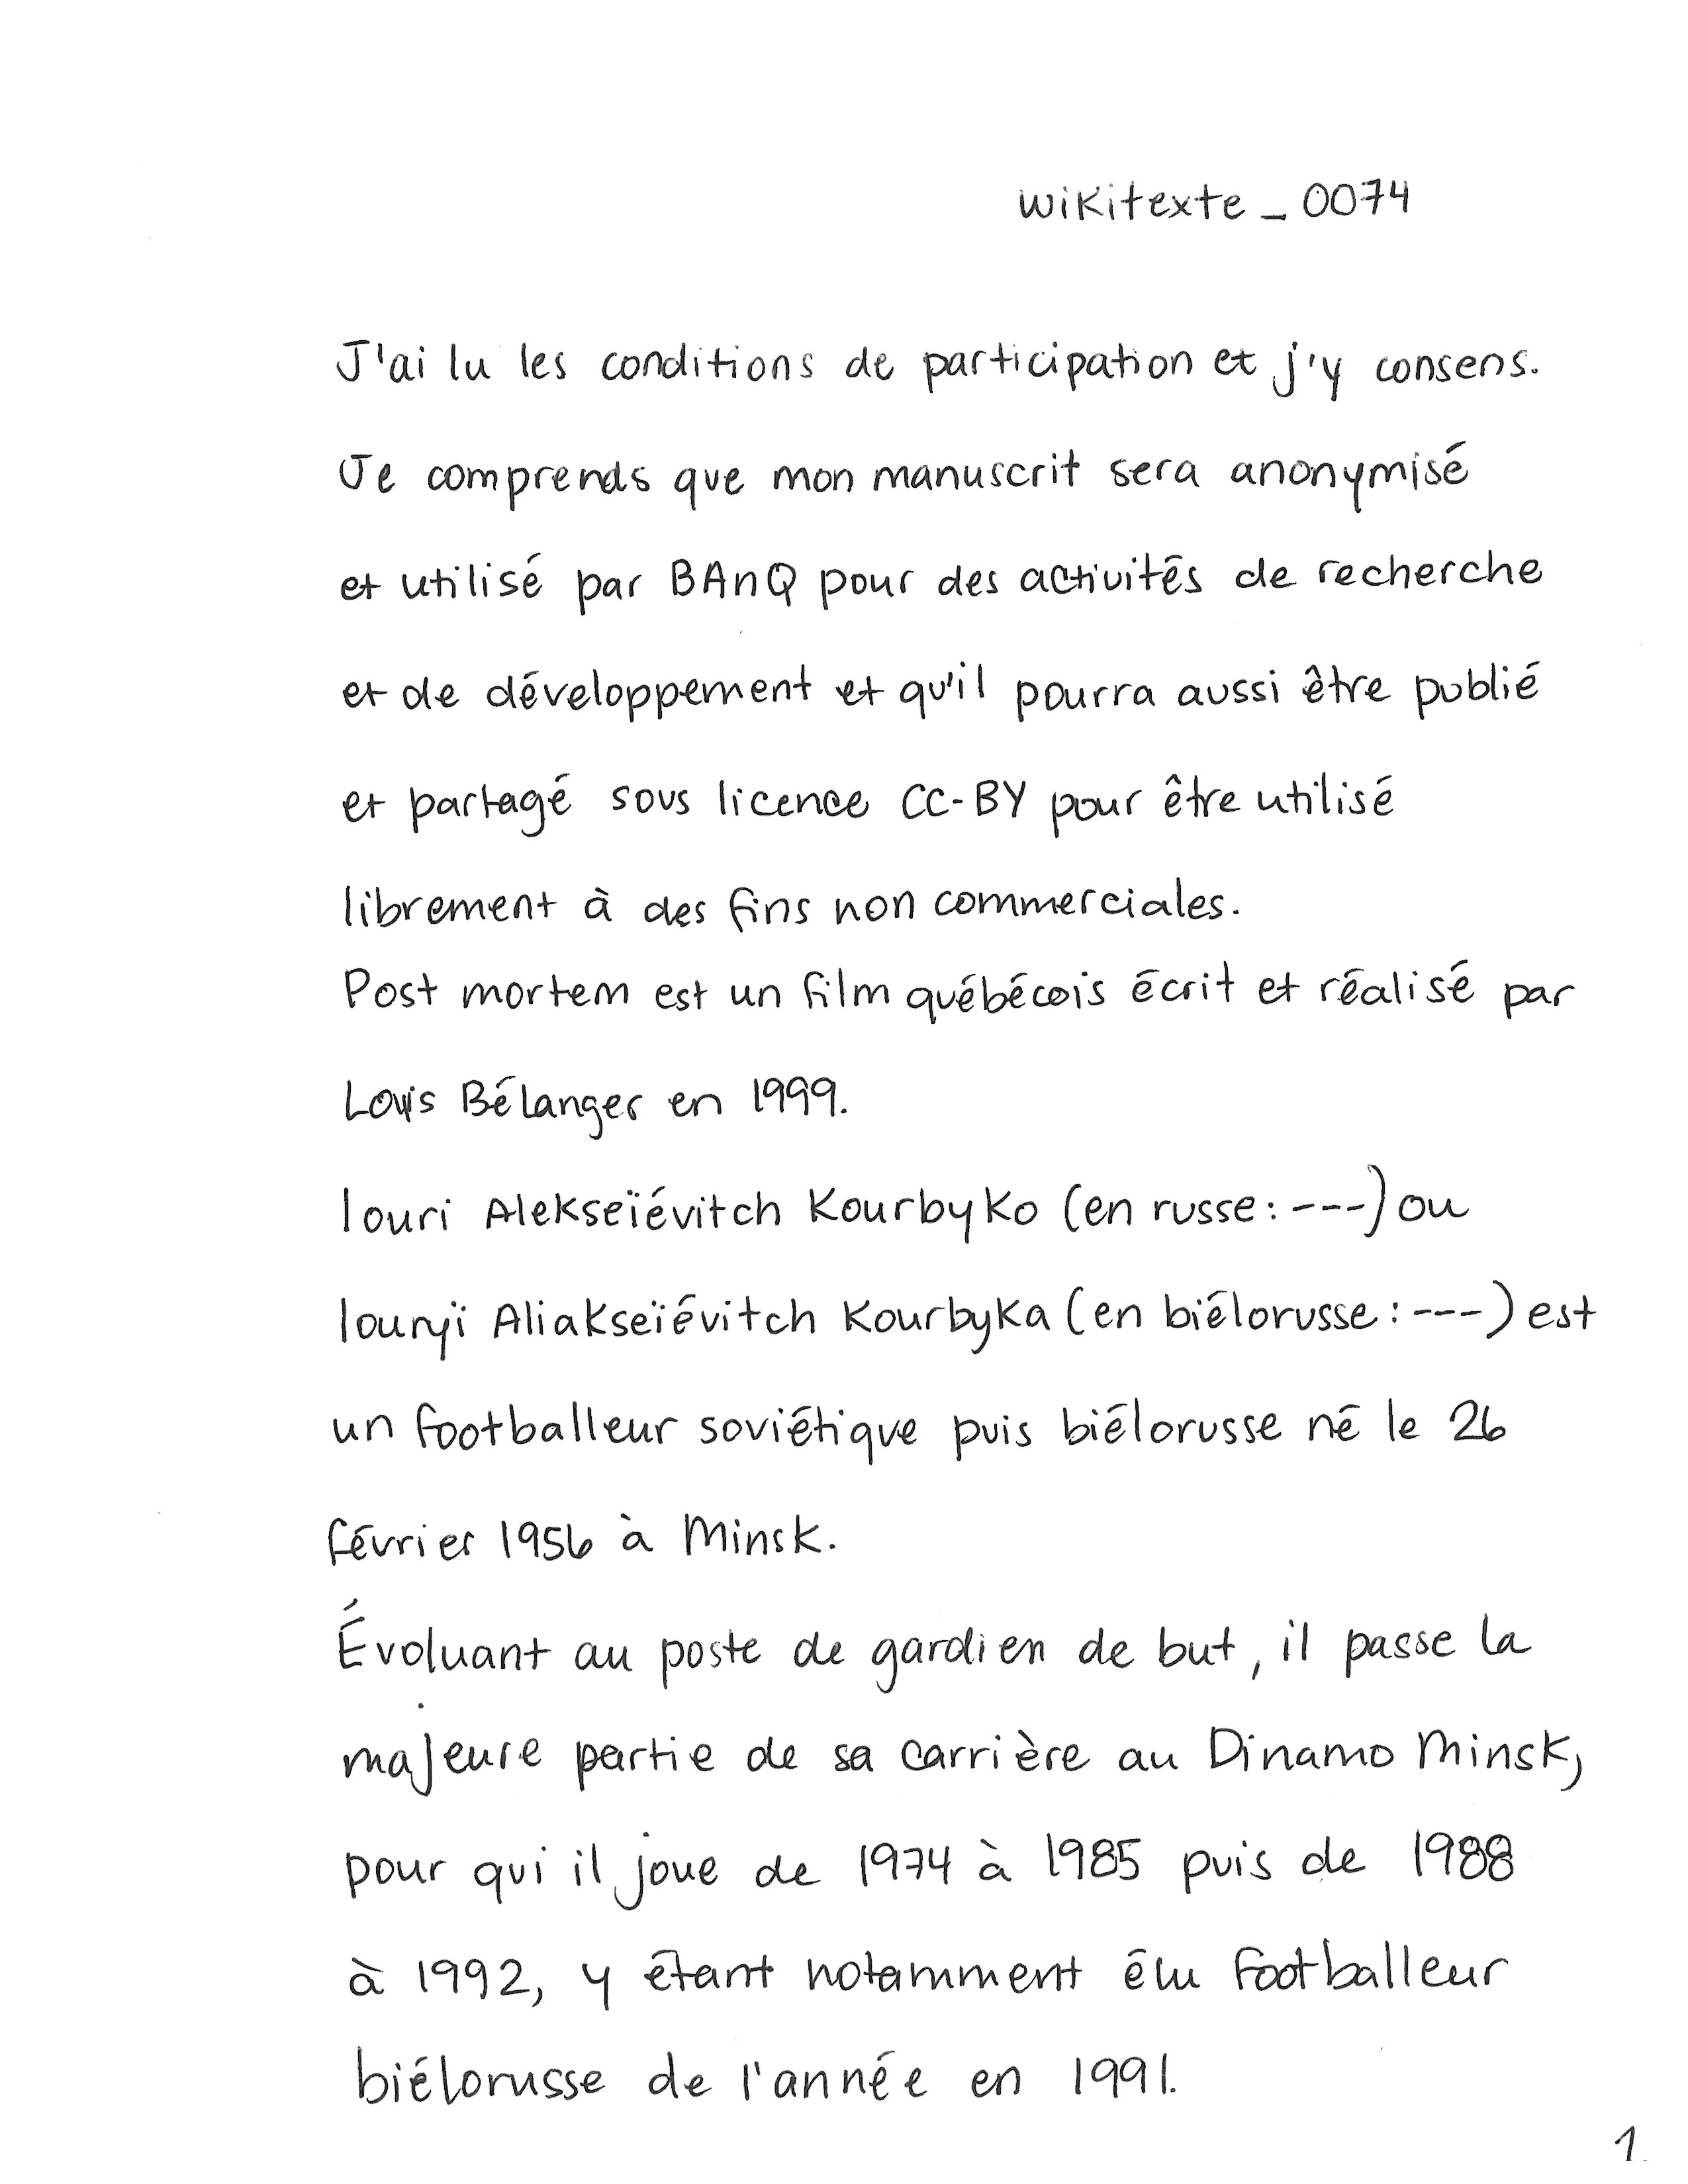 wikitexte_0074
J'ai lu les conditions de participation et j'y consens.
Je comprends que mon manuscrit sera anonymisé
et utilisé par BAnQ pour des activités de recherche
et de développement et qu'il pourra aussi être publié
et partagé sous licence CC-BY pour être utilisé
librement à des fins non commerciales.
Post mortem est un film québécois écrit et réalisé par
Louis Bélanger en 1999.
Iouri Alekseïévitch Kourbyko (en russe : ---) ou
Iouryï Aliakseïévitch Kourbyka (en biélorusse : ---) est
un footballeur soviétique puis biélorusse né le 26
février 1956 à Minsk.
Évoluant au poste de gardien de but, il passe la
majeure partie de sa carrière au Dinamo Minsk,
pour qui il joue de 1974 à 1985 puis de 1988
à 1992, y étant notamment élu footballeur
biélorusse de l'année en 1991.
1